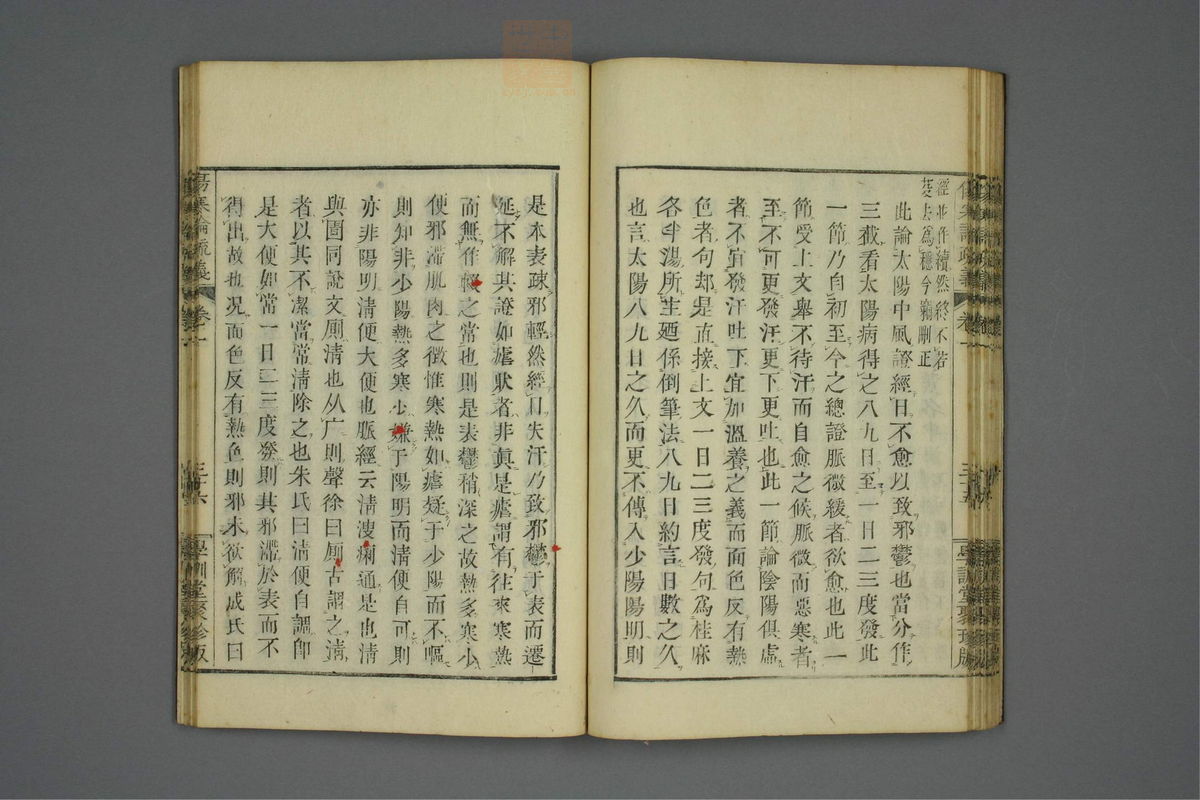 經並作續然終不若
此論太陽中風證經日不愈以致邪鬱也當分作
三截看太陽病得之八九日至一日二三度發此
一節乃自初至今之總證脈微緩者欲愈也此一
節受上文舉不待汗而自愈之候脈微而惡寒者
至不可更發汗更下更吐也此一節論陰陽俱虛
者不宜發汗吐下宜加溫養之義而面色反有熱
色者句却是直接上文一日二三度發句爲桂麻
各半湯所生廼係倒筆法八九日約言日數之久
也言太陽八九日之久而更不傳入少陽陽明則
是本表疎邪輕然經日失汗乃致邪鬱于表而遷
延不解其證如瘧狀者非眞是瘧謂有往來寒熱
而無作輟之常也則是表鬱稍深之故熱多寒少
便邪滯肌肉之徵惟寒熱如瘧疑于少陽而不嘔
則知非少陽熱多寒少嫌于陽明而淸便自可則
亦非陽明淸便大便也脈經云淸溲痢通是也淸
與圊同說文厠淸也从广則聲徐曰厠古謂之淸
者以其不潔當常淸除之也朱氏曰淸便自調卽
是大便如常一日二三度發則其邪滯於表而不
得出故也況面色反有熱色則邪未欲解成氏曰
傷寒論疏義
卷一
三十六
學訓堂聚珍版